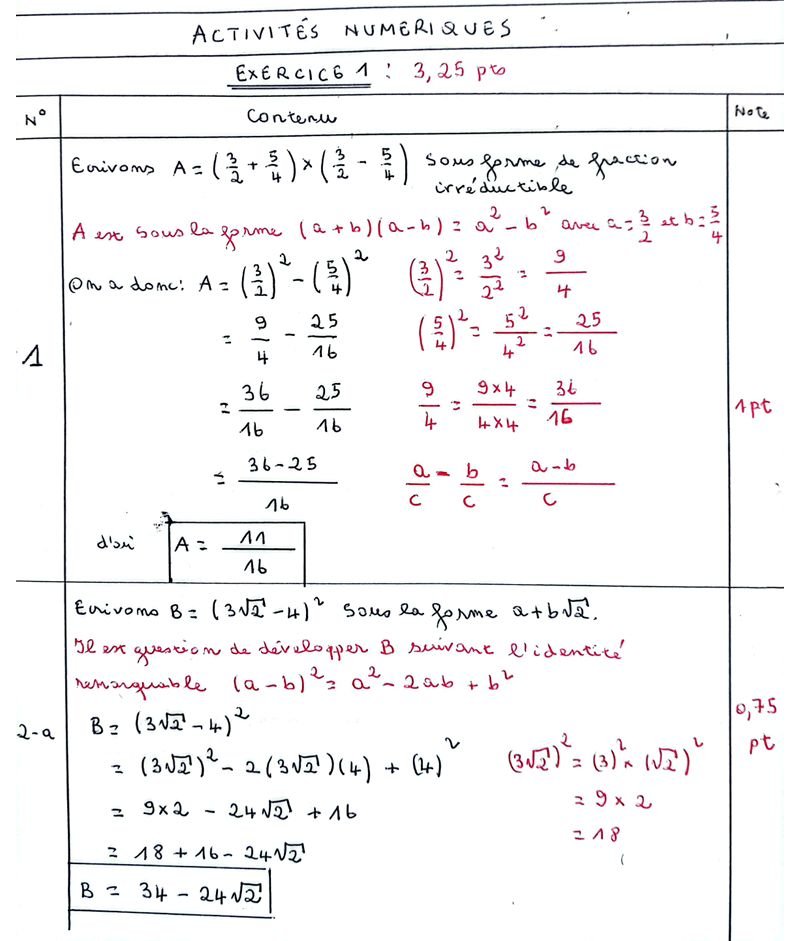 ACTIVITÉS NUMÉRIQUES
EXERCICE 1 : 3,25 pts
N° Contenu Note
Ecrivons A = (3/2 + 5/4) × (3/2 - 5/4) sous forme de fraction
irréductible
A est sous la forme (a+b)(a-b) = a² - b² avec a = 3/2 et b = 5/4
On a donc: A = (3/2)² - (5/4)² (3/2)² = 3²/2² = 9/4
= 9/4 - 25/16 (5/4)² = 5²/4² = 25/16
1
= 36/16 - 25/16 9/4 = 9×4/4×4 = 36/16 1pt
= 36-25/16 a/c - b/c = a-b/c
d'où A = 11/16
Ecrivons B = (3√2 - 4)² sous la forme a+b√2.
Il est question de développer B suivant l'identité
remarquable (a-b)² = a² - 2ab + b²
2-a B = (3√2 - 4)² 0,75 pt
= (3√2)² - 2(3√2)(4) + (4)² (3√2)² = (3)² × (√2)²
= 9×2 - 24√2 + 16 = 9 × 2
= 18 + 16 - 24√2 = 18
B = 34 - 24√2